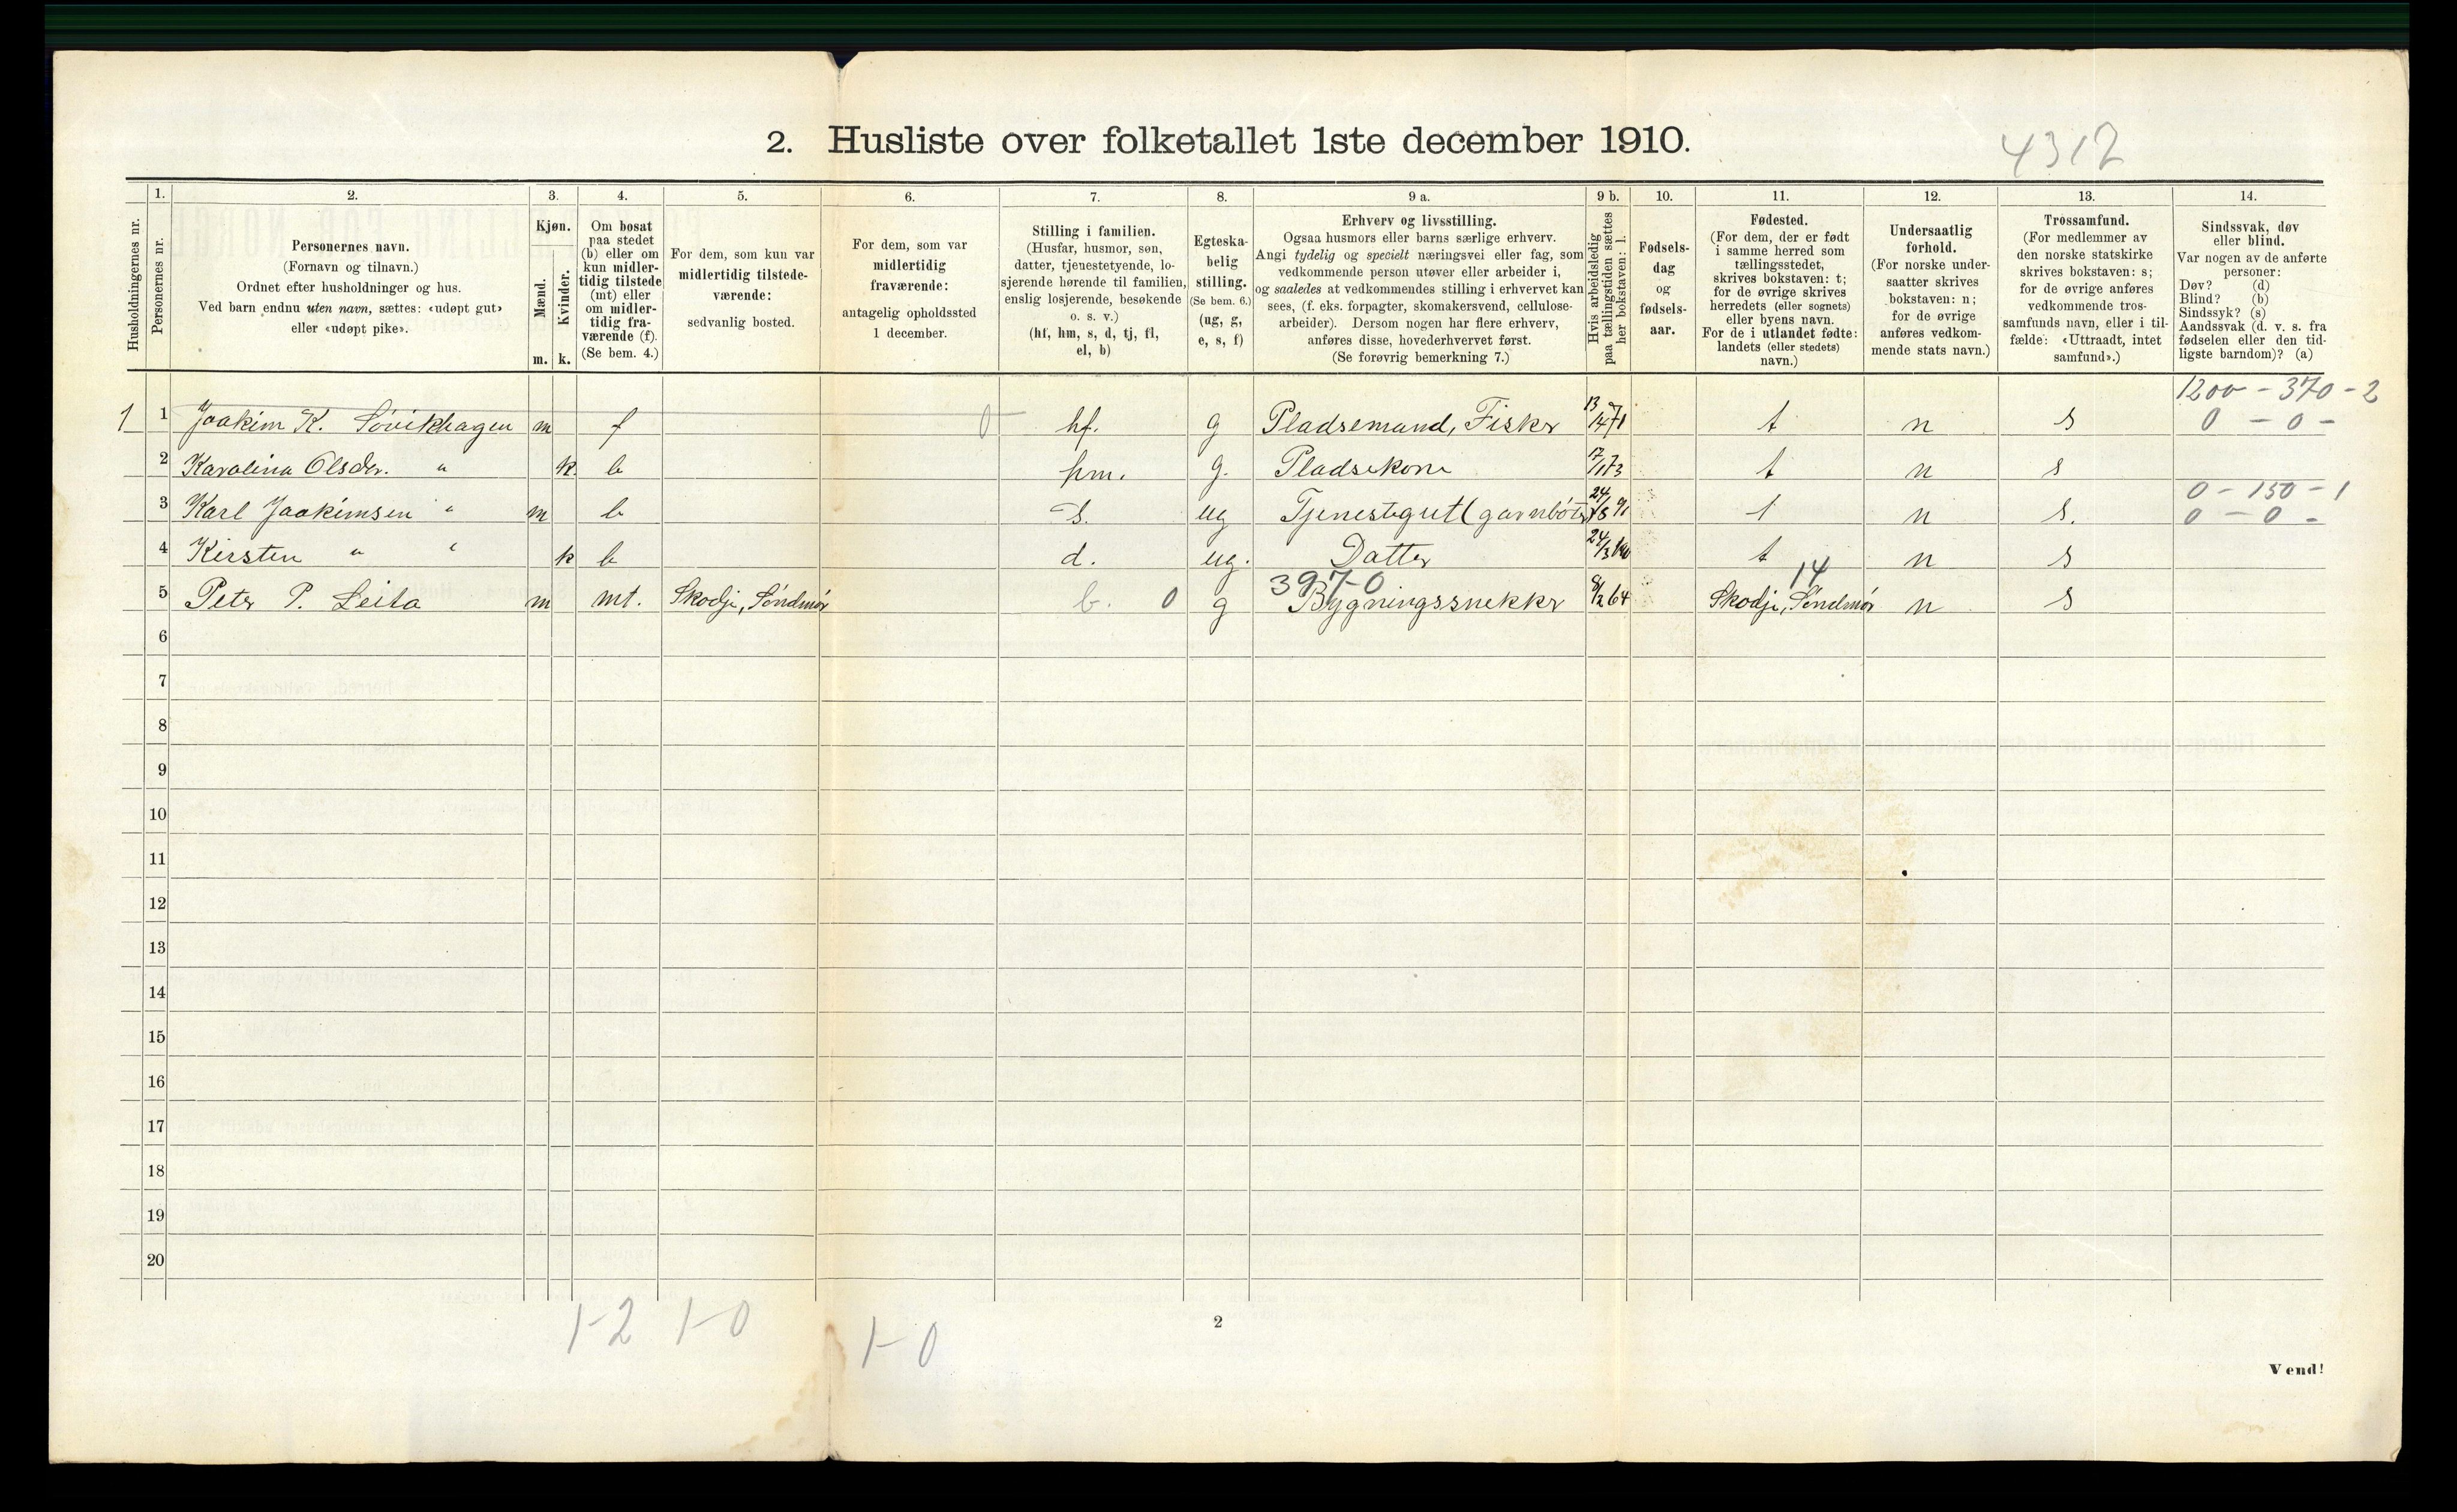 2. Husliste over folketallet 1ste december 1910.
4312
Husholdningernes nr.
1.
Personernes nr.
2.
Personernes navn.
(Fornavn og tilnavn.)
Ordnet efter husholdninger og hus.
Ved barn endnu uten navn, sættes: «udøpt gut»
eller «udøpt pike».
3.
Kjøn.
Mænd.
Kvinder.
m. k.
4.
Om bosat
paa stedet
(b) eller om
kun midler-
tidig tilstede
(mt) eller
om midler-
tidig fra-
værende (f).
(Se bem. 4.)
5.
For dem, som kun var
midlertidig tilstede-
værende:
sedvanlig bosted.
6.
For dem, som var
midlertidig
fraværende:
antagelig opholdssted
1 december.
7.
Stilling i familien.
(Husfar, husmor, søn,
datter, tjenestetyende, lo-
sjerende hørende til familien,
enslig losjerende, besøkende
o. s. v.)
(hf, hm, s, d, tj, fl,
el, b)
8.
Egteska-
belig
stilling.
(Se bem. 6.)
(ug, g,
e, s, f)
9 a.
Erhverv og livsstilling.
Ogsaa husmors eller barns særlige erhverv.
Angi tydelig og specielt næringsvei eller fag, som
vedkommende person utøver eller arbeider i,
og saaledes at vedkommendes stilling i erhvervet kan
sees, (f. eks. forpagter, skomakersvend, cellulose-
arbeider). Dersom nogen har flere erhverv,
anføres disse, hovederhvervet først.
(Se forøvrig bemerkning 7.)
9 b.
Hvis arbeidsledig
paa tællingstiden sættes
her bokstaven: l.
10.
Fødsels-
dag
og
fødsels-
aar.
11.
Fødested.
(For dem, der er født
i samme herred som
tællingsstedet,
skrives bokstaven: t;
for de øvrige skrives
herredets (eller sognets)
eller byens navn.
For de i utlandet fødte:
landets (eller stedets)
navn.)
12.
Undersaatlig
forhold.
(For norske under-
saatter skrives
bokstaven: n;
for de øvrige
anføres vedkom-
mende stats navn.)
13.
Trossamfund.
(For medlemmer av
den norske statskirke
skrives bokstaven: s;
for de øvrige anføres
vedkommende tros-
samfunds navn, eller i til-
fælde: «Uttraadt, intet
samfund».)
14.
Sindssvak, døv
eller blind.
Var nogen av de anførte
personer:
Døv? (d)
Blind? (b)
Sindssyk? (s)
Aandssvak (d. v. s. fra
fødselen eller den tid-
ligste barndom)? (a)
1200 - 370 - 2
1 1 Joakim K. Søvikhagen m f 0 hf. g Pladsemand, Fisker t n s 0 - 0 -
2 Karolina Olsdr. " k b hm. g. Pladsekone 17/1 73 t n s
0 - 150 - 1
3 Karl Joakimsen " m b s. ug Tjenestegut (garnbøter) 24/8 91 t n s. 0 - 0 -
4 Kirsten " " k b d. ug. Datter t n s
397-0 14
5 Peter P. Leita m mt. Skodje, Søndmør b. 0 g Bygningssnekker 8/2 64 Skodje, Søndmør n s
6
7
8
9
10
11
12
13
14
15
16
17
18
19
20
1-2 1-0 1-0
2
Vend!